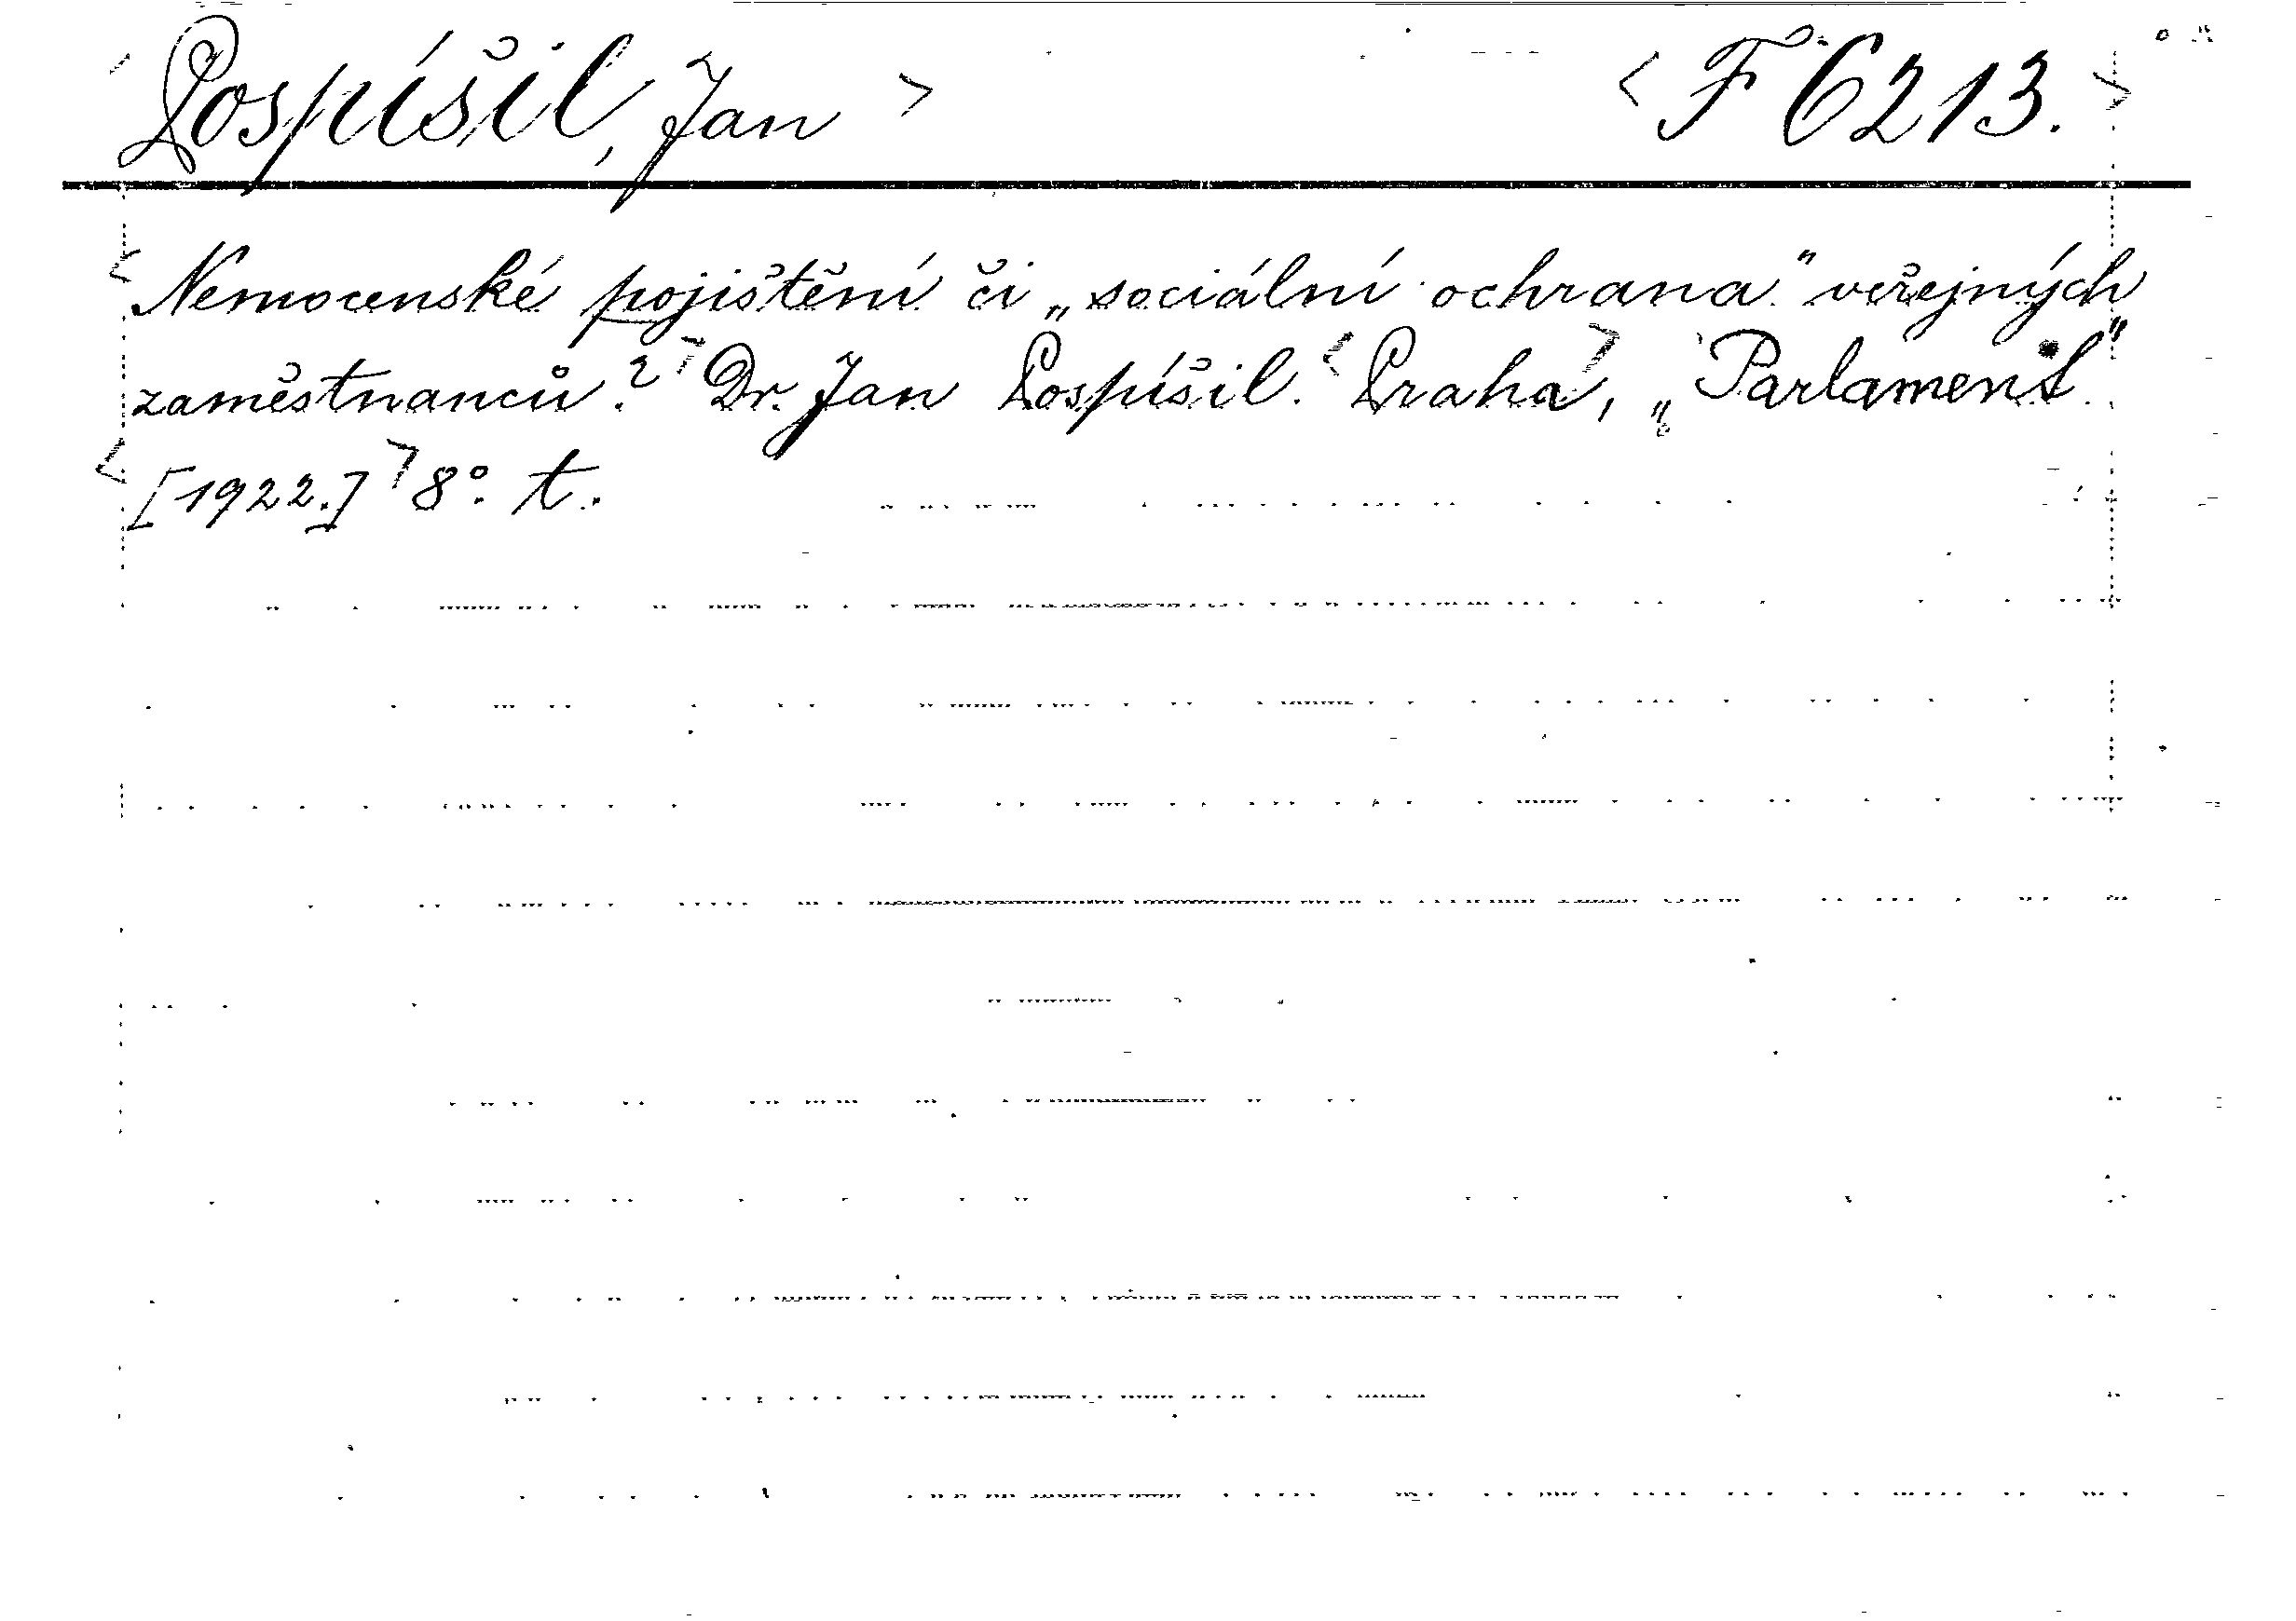 Pospíšil, Jan > < F 6213. >
< Nemocenské pojištění či „sociální ochrana" veřejných
zaměstnanců? > Dr. Jan Pospíšil. < Praha >, „Parlament"
< [1922.] > 8°. t.